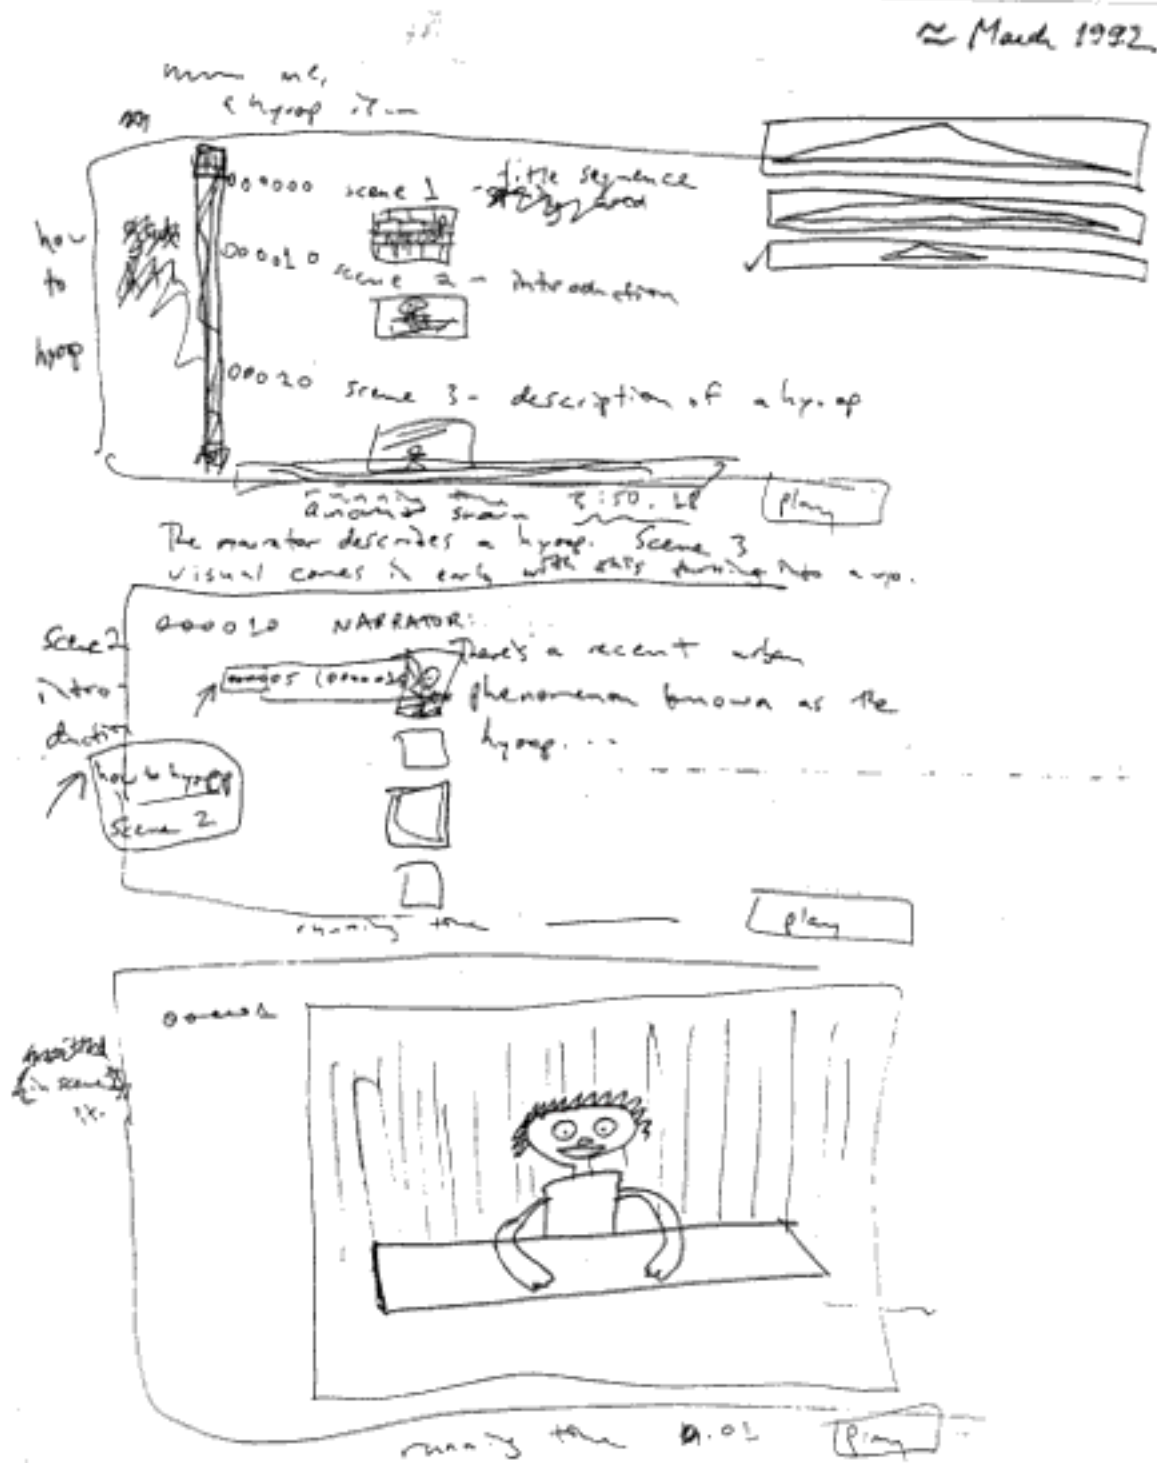 ≃ March 1992
a hyop it
how
to
hyop
000000 scene 1 - title sequence
000010 scene 2 - introduction
00020 scene 3 - description of a hyop
running time
amount shown 3:50.18
play
The narrator describes a hyop. Scene 3
visual comes in early with this turning into a v.o.
Scene 2
intro-
duction
000010 NARRATOR:
There's a recent urban
phenomenon known as the
hyop....
how to hyop
Scene 2
running time
play
000001
in scene 2
running time 0.01
play